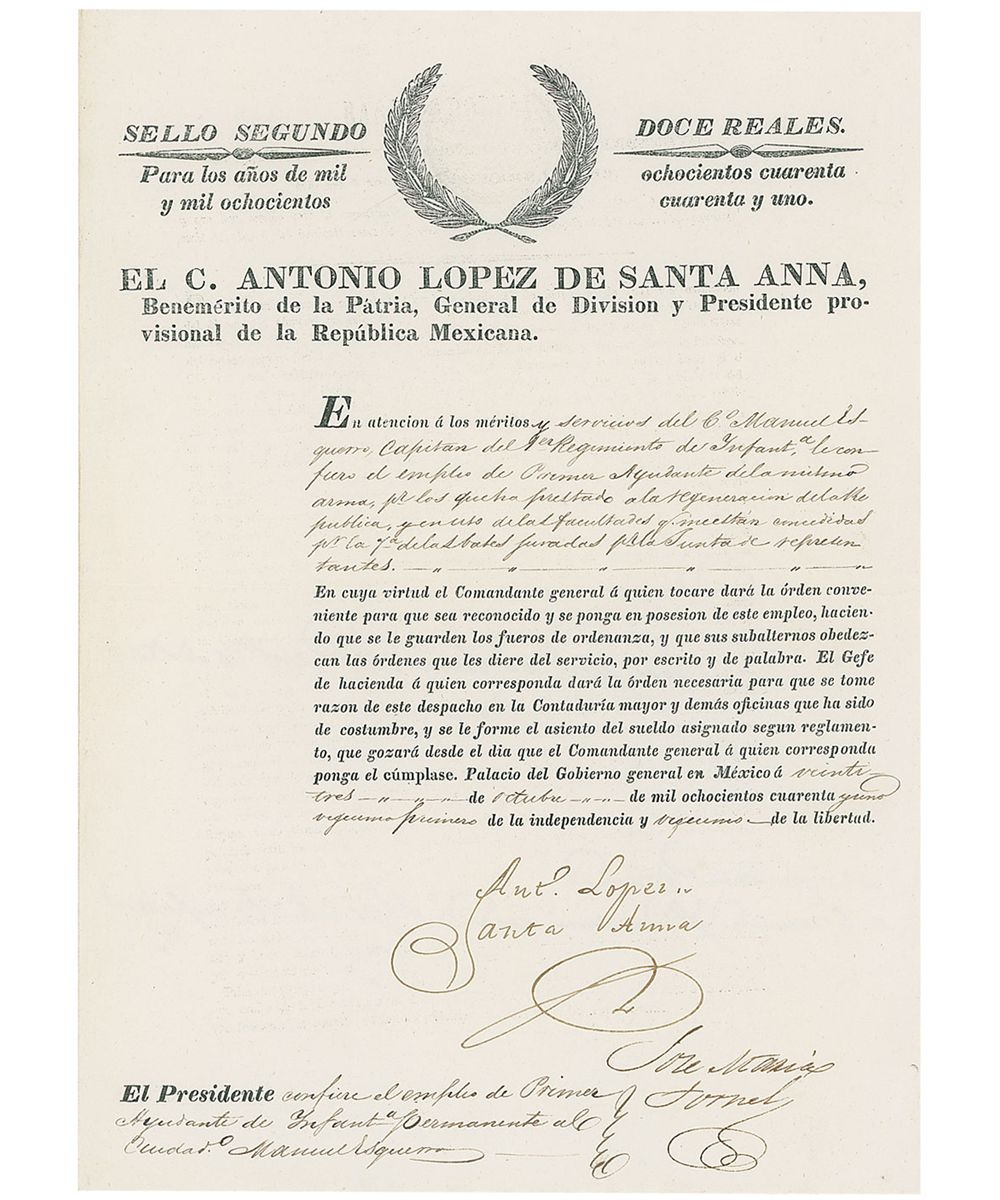 SELLO SEGUNDO
DOCE REALES.
Para los años de mil
ochocientos cuarenta
y mil ochocientos
cuarenta y uno.
EL C. ANTONIO LOPEZ DE SANTA ANNA,
Benemérito de la Pátria, General de Division y Presidente pro-
visional de la República Mexicana.
En atencion á los méritos y servicios del C.º Manuel Es-
guerro, Capitan del 1.er Regimiento de Infant.ª le con-
fiero el empleo de Primer Ayudante de la misma
arma, pr. los que ha prestado a la regeneracion de la Re
publica, y en uso de las facultades q. me están concedidas
pr. la 7.ª de las bases juradas pr. la Junta de represen
tantes.
En cuya virtud el Comandante general á quien tocare dará la órden conve-
niente para que sea reconocido y se ponga en posesion de este empleo, hacien-
do que se le guarden los fueros de ordenanza, y que sus subalternos obedez-
can las órdenes que les diere del servicio, por escrito y de palabra. El Gefe
de hacienda á quien corresponda dará la órden necesaria para que se tome
razon de este despacho en la Contaduría mayor y demás oficinas que ha sido
de costumbre, y se le forme el asiento del sueldo asignado segun reglamen-
to, que gozará desde el dia que el Comandante general á quien corresponda
ponga el cúmplase. Palacio del Gobierno general en México á veinti-
tres de octubre de mil ochocientos cuarenta y uno
vigecimo primero de la independencia y vigecimo de la libertad.
Ant.º Lopez
Santa Anna
Jose Maria
Tornel
El Presidente confiere el empleo de Primer
Ayudante de Infant.ª Permanente al
Ciudad.º Manuel Esguerro